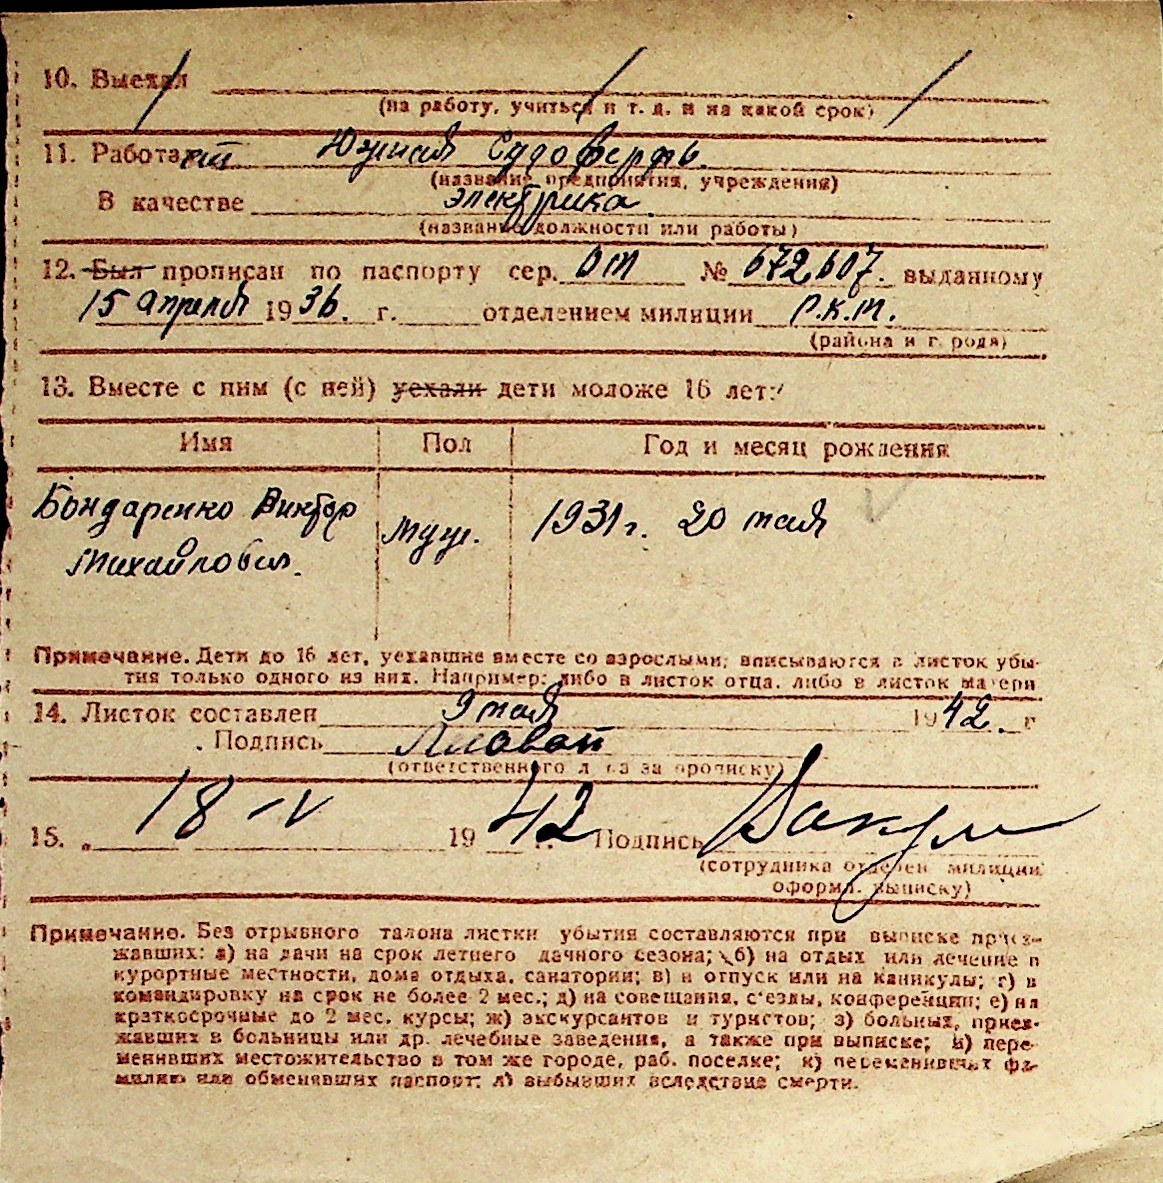 10. Выехал
(на работу, учиться и т. д. и на какой срок)
11. Работает Южная Судоверфь.
(название предприятия, учреждения)
В качестве электрика
(название должности или работы)
12. Был прописан по паспорту сер. ОТ № 672607. выданному
15 апреля 1936. г. отделением милиции Р.К.М.
(района и города)
13. Вместе с ним (с ней) уехали дети моложе 16 лет:
Имя Пол Год и месяц рождения
Бондаренко Виктор
Михайлович. муж. 1931 г. 20 мая
Примечание. Дети до 16 лет, уехавшие вместе со взрослыми, вписываются в листок убы-
тия только одного из них. Например: либо в листок отца, либо в листок матери
14. Листок составлен 9 мая 1942. г
Подпись
(ответственного лица за прописку)
15. 18-V 1942 г. Подпись
(сотрудника отделен. милиции
оформ. выписку)
Примечание. Без отрывного талона листки убытия составляются при выписке приез-
жавших: а) на дачи на срок летнего дачного сезона; б) на отдых или лечение в
курортные местности, дома отдыха, санатории; в) в отпуск или на каникулы; г) в
командировку на срок не более 2 мес.; д) на совещания, с'езды, конференции; е) на
краткосрочные до 2 мес. курсы; ж) экскурсантов и туристов; з) больных, приез-
жавших в больницы или др. лечебные заведения, а также при выписке; и) пере-
менивших местожительство в том же городе, раб. поселке; к) переменивших фа-
милию или обменявших паспорт; л) выбывших вследствие смерти.